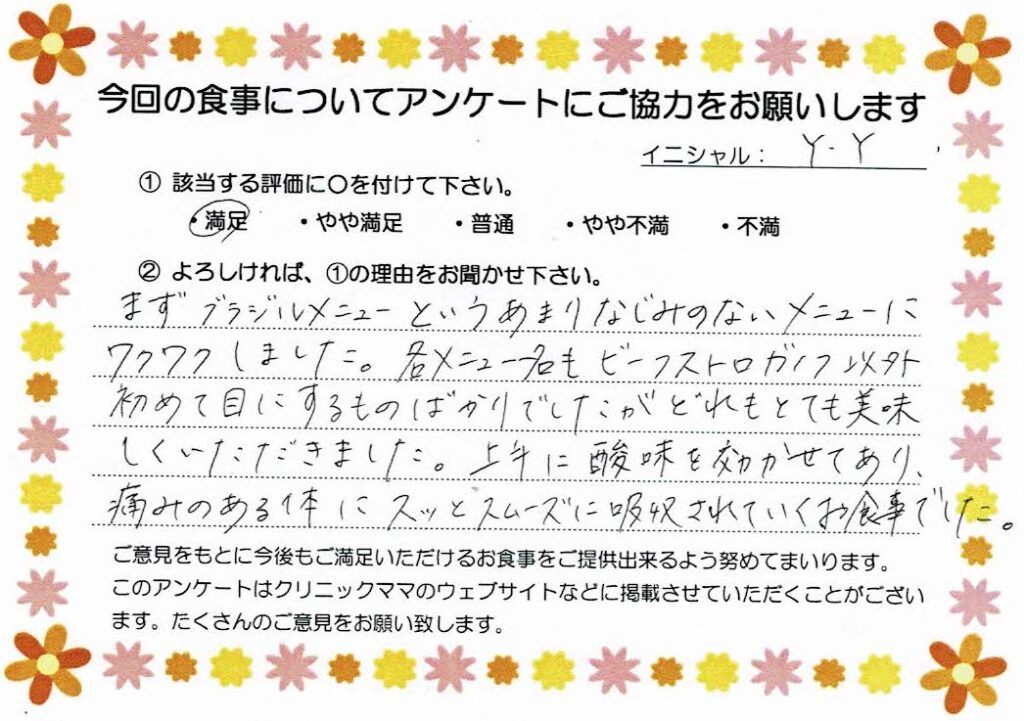 今回の食事についてアンケートにご協力をお願いします
イニシャル： Y・Y
① 該当する評価に○を付けて下さい。
・満足 ・やや満足 ・普通 ・やや不満 ・不満
② よろしければ、①の理由をお聞かせ下さい。
まずブラジルメニューというあまりなじみのないメニューに
ワクワクしました。各メニュー名もビーフストロガノフ以外
初めて目にするものばかりでしたがどれもとても美味
しくいただきました。上手に酸味を効かせてあり、
痛みのある体にスッとスムーズに吸収されていくお食事でした。
ご意見をもとに今後もご満足いただけるお食事をご提供出来るよう努めてまいります。
このアンケートはクリニックママのウェブサイトなどに掲載させていただくことがござい
ます。たくさんのご意見をお願い致します。